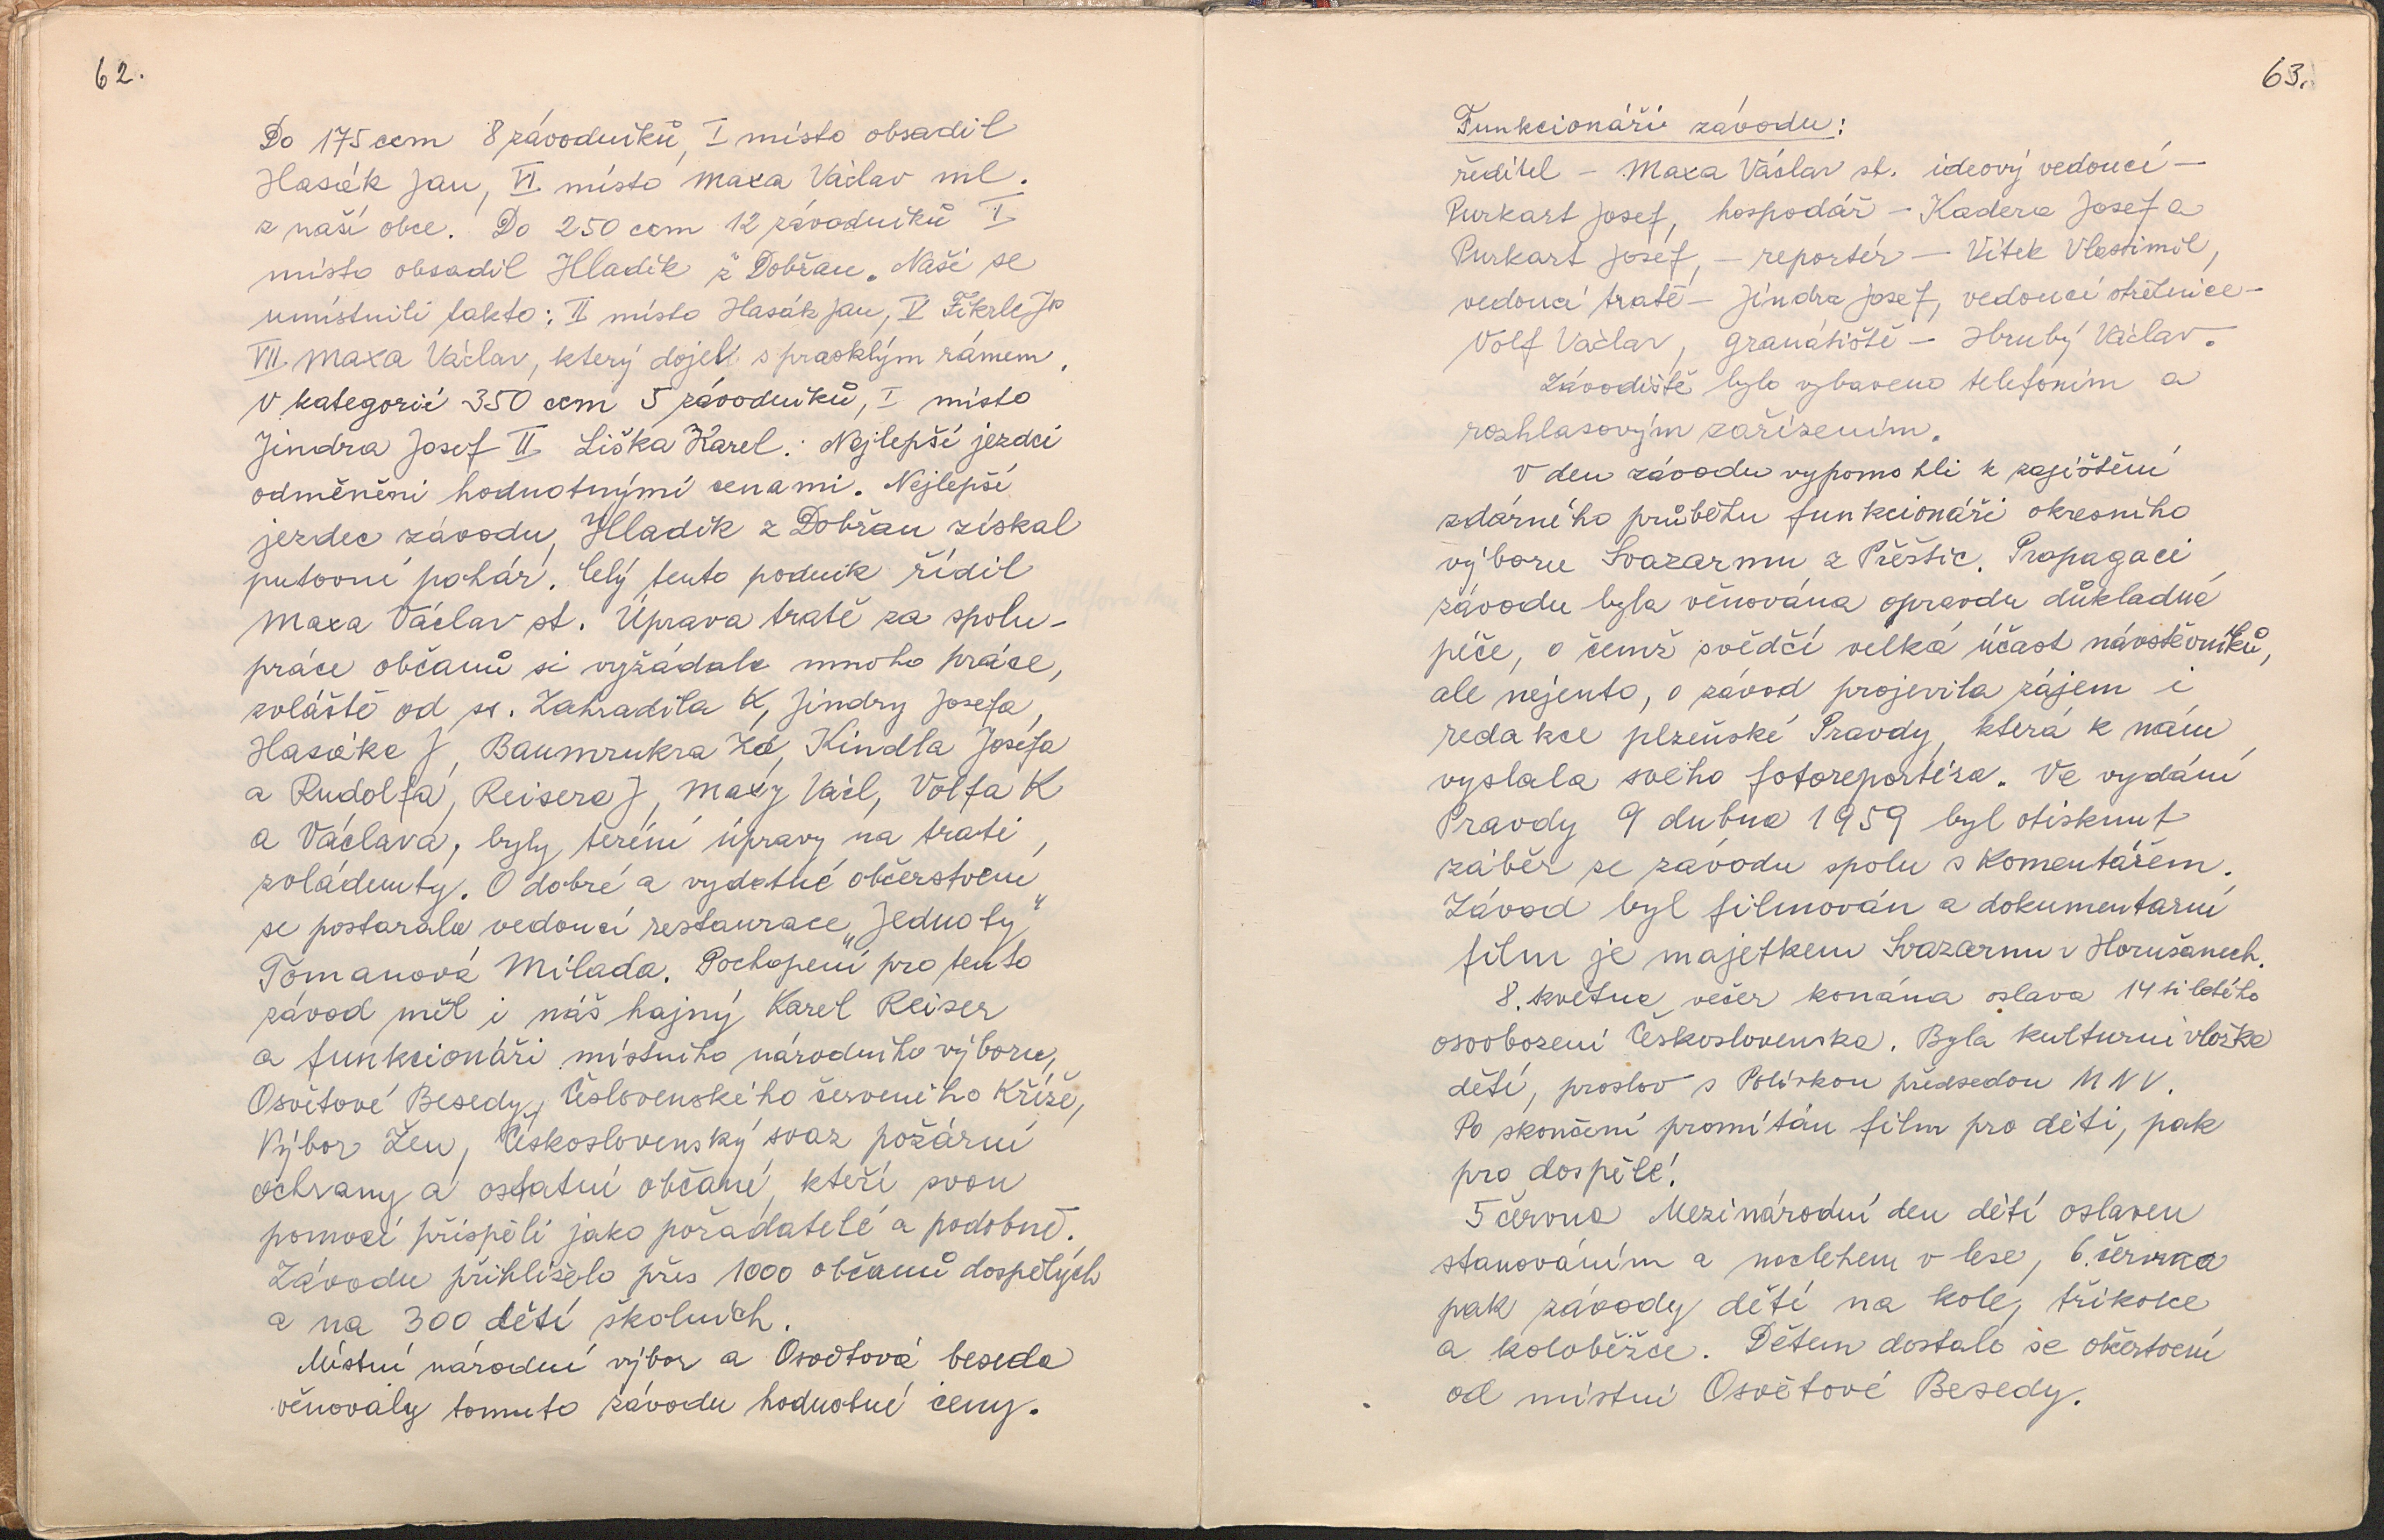 62.
Do 175 ccm 8 závodníků, I místo obsadil
Hasák Jan, VI místo Maxa Václav ml.
z naší obce. Do 250 ccm 12 závodníků I
místo obsadil Hladík z Dobřan. Naši se
umístnili takto: II místo Hasák Jan, V Fikrle
VII. Maxa Václav, který dojel s prasklým rámem.
V kategorii 350 ccm 5 závodníků, I místo
Jindra Josef II Liška Karel. Nejlepší jezdci
odměněni hodnotnými cenami. Nejlepší
jezdec závodu, Hladík z Dobřan získal
putovní pohár. Celý tento podnik řídil
Maxa Václav st. Úprava tratě za spolu-
práce občanů si vyžádala mnoho práce,
zvláště od ss. Zahradila K, Jindry Josefa,
Hasáka J, Baumrukra Zd, Kindla Josefa
a Rudolfa, Reisera J, Maxy Václ, Volfa K
a Václava, byly teréní úpravy na trati
zvládnuty. O dobré a vydatné občerstvení
se postarala vedoucí restaurace „Jednoty“
Tomanová Milada. Pochopení pro tento
závod měl i náš hajný Karel Reiser
a funkcionáři místního národního výboru,
Osvětové Besedy, Česlovenského červeného Kříže,
Výbor Žen, Československý svaz požární
ochrany a ostatní občané, kteří svou
pomocí přispěli jako pořadatelé a podobně.
Závodu přihlíželo přes 1000 občanů dospělých
a na 300 dětí školních.
Místní národní výbor a Osvětová beseda
věnovaly tomuto závodu hodnotné ceny.
63.
Funkcionáři závodu:
ředitel – Maxa Václav st. ideový vedoucí –
Purkart Josef, hospodář – Kadera Josef a
Purkart Josef, – reportér – Vítek Vlastimil,
vedoucí tratě – Jindra Josef, vedoucí střelnice –
Volf Václav, granátiště – Hrubý Václav.
Závodiště bylo vybaveno telefoním a
rozhlasovým zařízením.
V den závodu vypomohli k zajištění
zdárného průběhu funkcionáři okresního
výboru Svazarmu z Přeštic. Propagaci
závodu byla věnována opravdu důkladná
péče, o čemž svědčí velká účast návštěvníků,
ale nejento, o závod projevila zájem i
redakce plzeňské Pravdy, která k nám
vyslala svého fotoreportéra. Ve vydání
Pravdy 9 dubna 1959 byl otisknut
záběr ze závodu spolu s komentářem.
Závod byl filmován a dokumentarní
film je majetkem Svazarmu v Horušanech.
8. května večer konána oslava 14 ti letého
osvobození Československa. Byla kulturní vložka
dětí, proslov s Polívkou předsedou MNV.
Po skončení promítán film pro děti, pak
pro dospělé.
5 června Mezinárodní den dětí oslaven
stanováním a noclehem v lese, 6. června
pak závody dětí na kole, tříkolce
a koloběžce. Dětem dostalo se občertvení
od místní Osvětové Besedy.